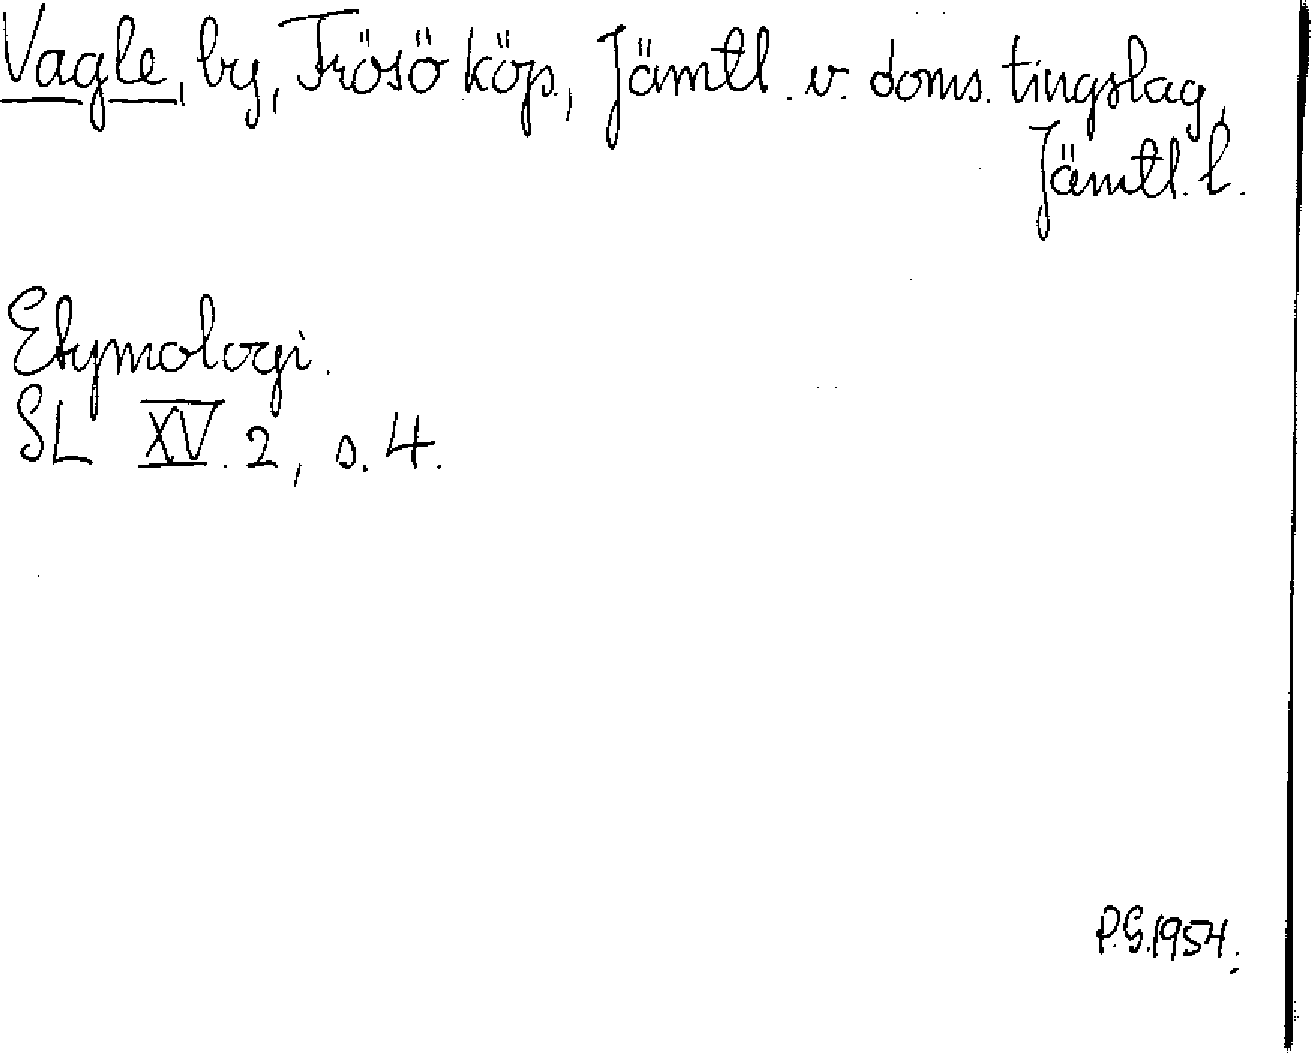 Vagle, by, Frösö köp., Jämtl. v. doms. tingslag,
Jämtl. l.
Etymologi.
SL XV. 2, s. 4.
P.G. 1954.